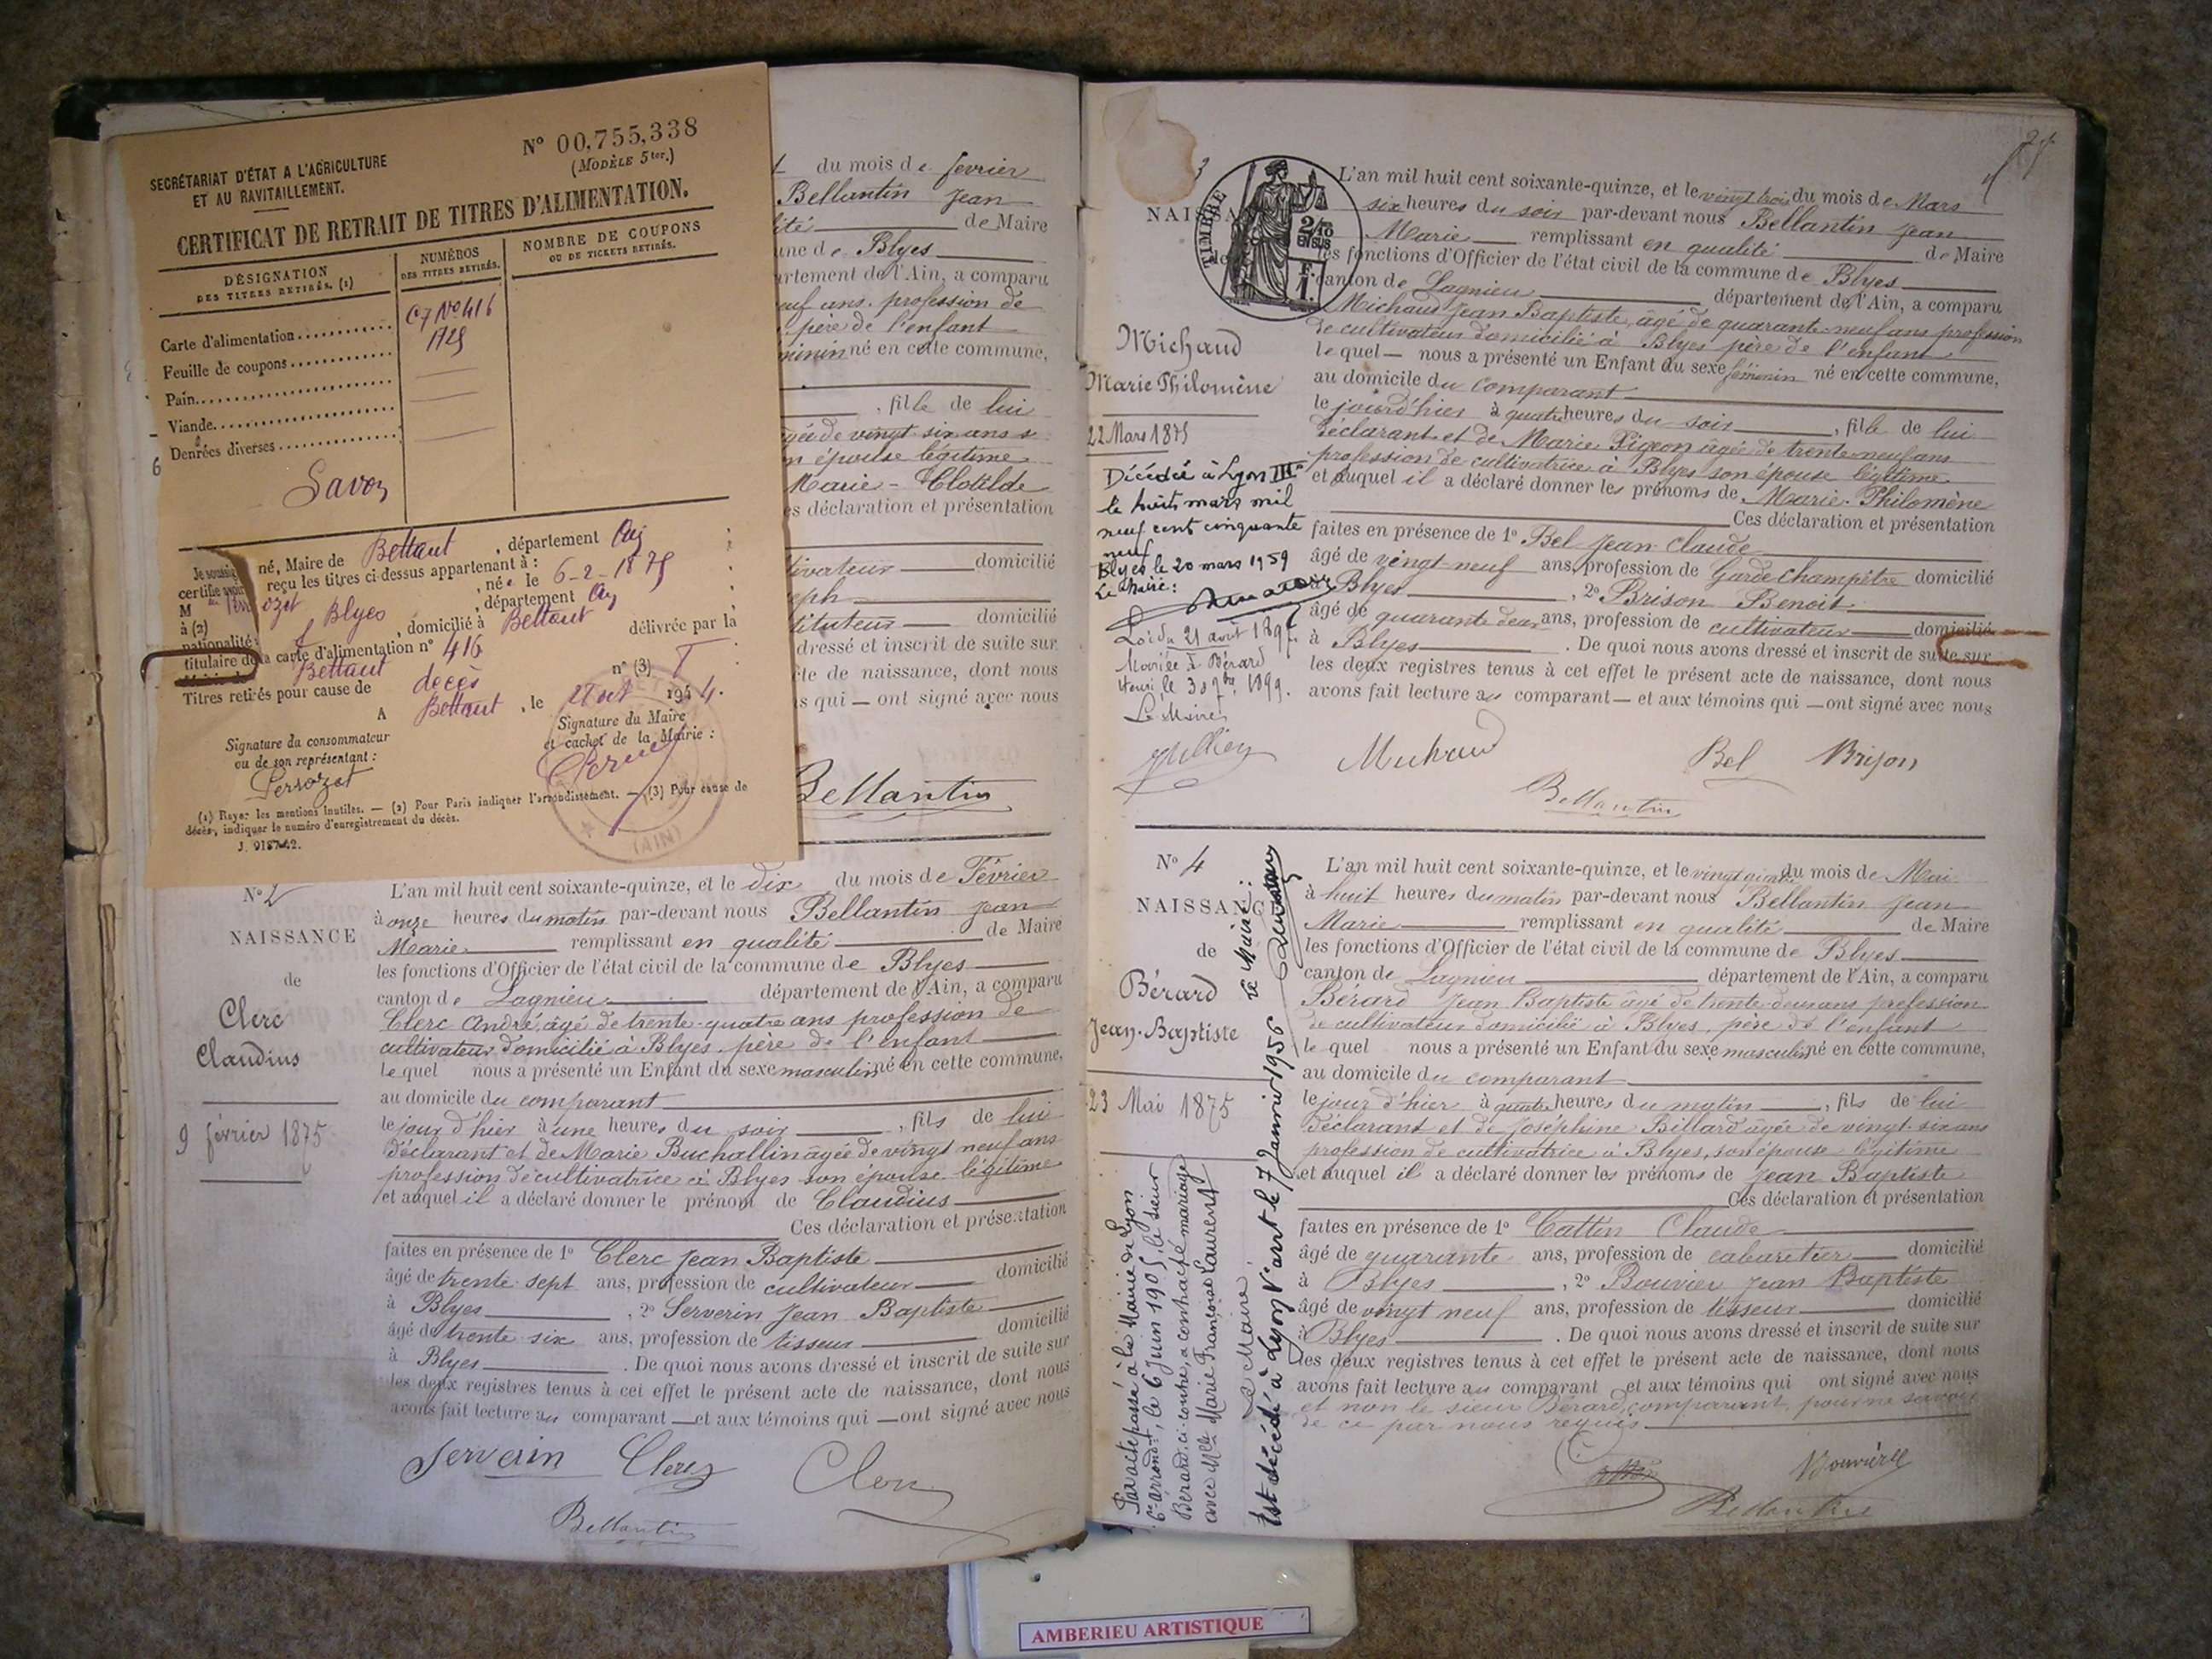 SECRÉTARIAT D'ÉTAT A L'AGRICULTURE
ET AU RAVITAILLEMENT.
N° 00,755,338
(MODÈLE 5 ter.)
CERTIFICAT DE RETRAIT DE TITRES D'ALIMENTATION.
DÉSIGNATION
DES TITRES RETIRÉS. (1)
NUMÉROS
DES TITRES RETIRÉS.
NOMBRE DE COUPONS
OU DE TICKETS RETIRÉS.
Carte d'alimentation
C7 N° 416
Feuille de coupons
1725
Pain
Viande
Denrées diverses
Savon
né, Maire de Bettant, département Ain
certifie avoir reçu les titres ci-dessus appartenant à :
M ozet, née le 6-2-1875
à (2) Blyes, département Ain
nationalité: f, domicilié à Bettant
titulaire de la carte d'alimentation n° 416 délivrée par la
Bettant n° (3) T
Titres retirés pour cause de décès
A Bettant, le oct 1944.
Signature du consommateur
ou de son représentant :
Perrozet
Signature du Maire
et cachet de la Mairie :
(AIN)
(1) Rayer les mentions inutiles. — (2) Pour Paris indiquer l'arrondissement. — (3) Pour cause de
décès, indiquer le numéro d'enregistrement du décès.
J. 918742.
du mois de fevrier
Bellantin Jean
ité de Maire
une de Blyes
artement de l'Ain, a comparu
euf ans. profession de
père de l'enfant
minin né en cette commune,
, fille de lui
gée de vingt-six ans
n épouse légitime
Marie-Clotilde
es déclaration et présentation
tivateur domicilié
eph
tituteur domicilié
dressé et inscrit de suite sur
te de naissance, dont nous
s qui — ont signé avec nous
Bellantin
N° 2
NAISSANCE
de
Clerc
Claudius
9 février 1875
L'an mil huit cent soixante-quinze, et le dix du mois de Février
à onze heures du matin par-devant nous Bellantin Jean
Marie remplissant en qualité de Maire
les fonctions d'Officier de l'état civil de la commune de Blyes
canton de Lagnieu département de l'Ain, a comparu
Clerc André, âgé de trente-quatre ans profession de
cultivateur domicilié à Blyes, père de l'enfant
lequel nous a présenté un Enfant du sexe masculin né en cette commune,
au domicile du comparant
le jour d'hier à une heures du soir, fils de lui
déclarant et de Marie Buchallin agée de vingt neuf ans
profession de cultivatrice à Blyes son épouse légitime
et auquel il a déclaré donner le prénom de Claudius
Ces déclaration et présentation
faites en présence de 1° Clerc Jean Baptiste
âgé de trente-sept ans, profession de cultivateur domicilié
à Blyes, 2° Serverin Jean Baptiste
âgé de trente six ans, profession de tisseur domicilié
à Blyes. De quoi nous avons dressé et inscrit de suite sur
les deux registres tenus à cet effet le présent acte de naissance, dont nous
avons fait lecture au comparant — et aux témoins qui — ont signé avec nous
Serverin Clerc Clerc
Bellantin
3
NAISSA
TIMBRE
2/10
EN SUS
F.
1.
Michaud
Marie Philomène
22 Mars 1875
Décédée à Lyon III e
le huit mars mil
neuf cent cinquante
neuf
Blyes le 20 mars 1959
Le Maire :
Loi du 21 août 1897.
Mariée à Bérard
Henri le 30 7bre 1899.
Le Maire
Jullien
L'an mil huit cent soixante-quinze, et le vingt trois du mois de Mars
six heures du soir par-devant nous Bellantin Jean
Marie remplissant en qualité de Maire
les fonctions d'Officier de l'état civil de la commune de Blyes
canton de Lagnieu département de l'Ain, a comparu
Michaud Jean Baptiste, âgé de quarante-neuf ans profession
de cultivateur domicilié à Blyes père de l'enfant
lequel — nous a présenté un Enfant du sexe féminin né en cette commune,
au domicile du comparant
le jourd'hier à quatre heures du soir, fille de lui
déclarant et de Marie Pigeon âgée de trente neuf ans
profession de cultivatrice à Blyes son épouse légitime
et auquel il a déclaré donner les prénoms de Marie-Philomène
Ces déclaration et présentation
faites en présence de 1° Bel Jean Claude
âgé de vingt-neuf ans, profession de Garde Champêtre domicilié
Blyes, 2° Brison Benoit
âgé de quarante deux ans, profession de cultivateur domicilié
à Blyes. De quoi nous avons dressé et inscrit de suite sur
les deux registres tenus à cet effet le présent acte de naissance, dont nous
avons fait lecture au comparant — et aux témoins qui — ont signé avec nous
Michaud Bel Brison
Bellantin
N° 4
NAISSANC
de
Bérard
Jean-Baptiste
23 Mai 1875
Par acte passé à la Mairie de Lyon
6e arrondt, le 6 Juin 1905, le sieur
Bérard, ci-contre, a contracté mariage
avec Mlle Marie Françoise Laurent
Le Maire.
Est décédé à Lyon V° arrt le 7 Janvier 1956 Le Maire :
L'an mil huit cent soixante-quinze, et le vingt quatre du mois de Mai
à huit heures du matin par-devant nous Bellantin Jean
Marie remplissant en qualité de Maire
les fonctions d'Officier de l'état civil de la commune de Blyes
canton de Lagnieu département de l'Ain, a comparu
Bérard Jean Baptiste âgé de trente-deux ans profession
de cultivateur domicilié à Blyes, père de l'enfant
lequel nous a présenté un Enfant du sexe masculin né en cette commune,
au domicile du comparant
le jour d'hier à quatre heures du matin, fils de lui
déclarant et de Joséphine Billard agée de vingt-six ans
profession de cultivatrice à Blyes, son épouse légitime
et auquel il a déclaré donner les prénoms de Jean Baptiste
Ces déclaration et présentation
faites en présence de 1° Cattin Claude
âgé de quarante ans, profession de cabaretier domicilié
à Blyes, 2° Bouvier Jean Baptiste
âgé de vingt neuf ans, profession de tisseur domicilié
à Blyes. De quoi nous avons dressé et inscrit de suite sur
les deux registres tenus à cet effet le présent acte de naissance, dont nous
avons fait lecture au comparant et aux témoins qui ont signé avec nous
et non le sieur Bérard, comparant, pour ne savoir
de ce par nous requis
Bellantin
AMBERIEU ARTISTIQUE